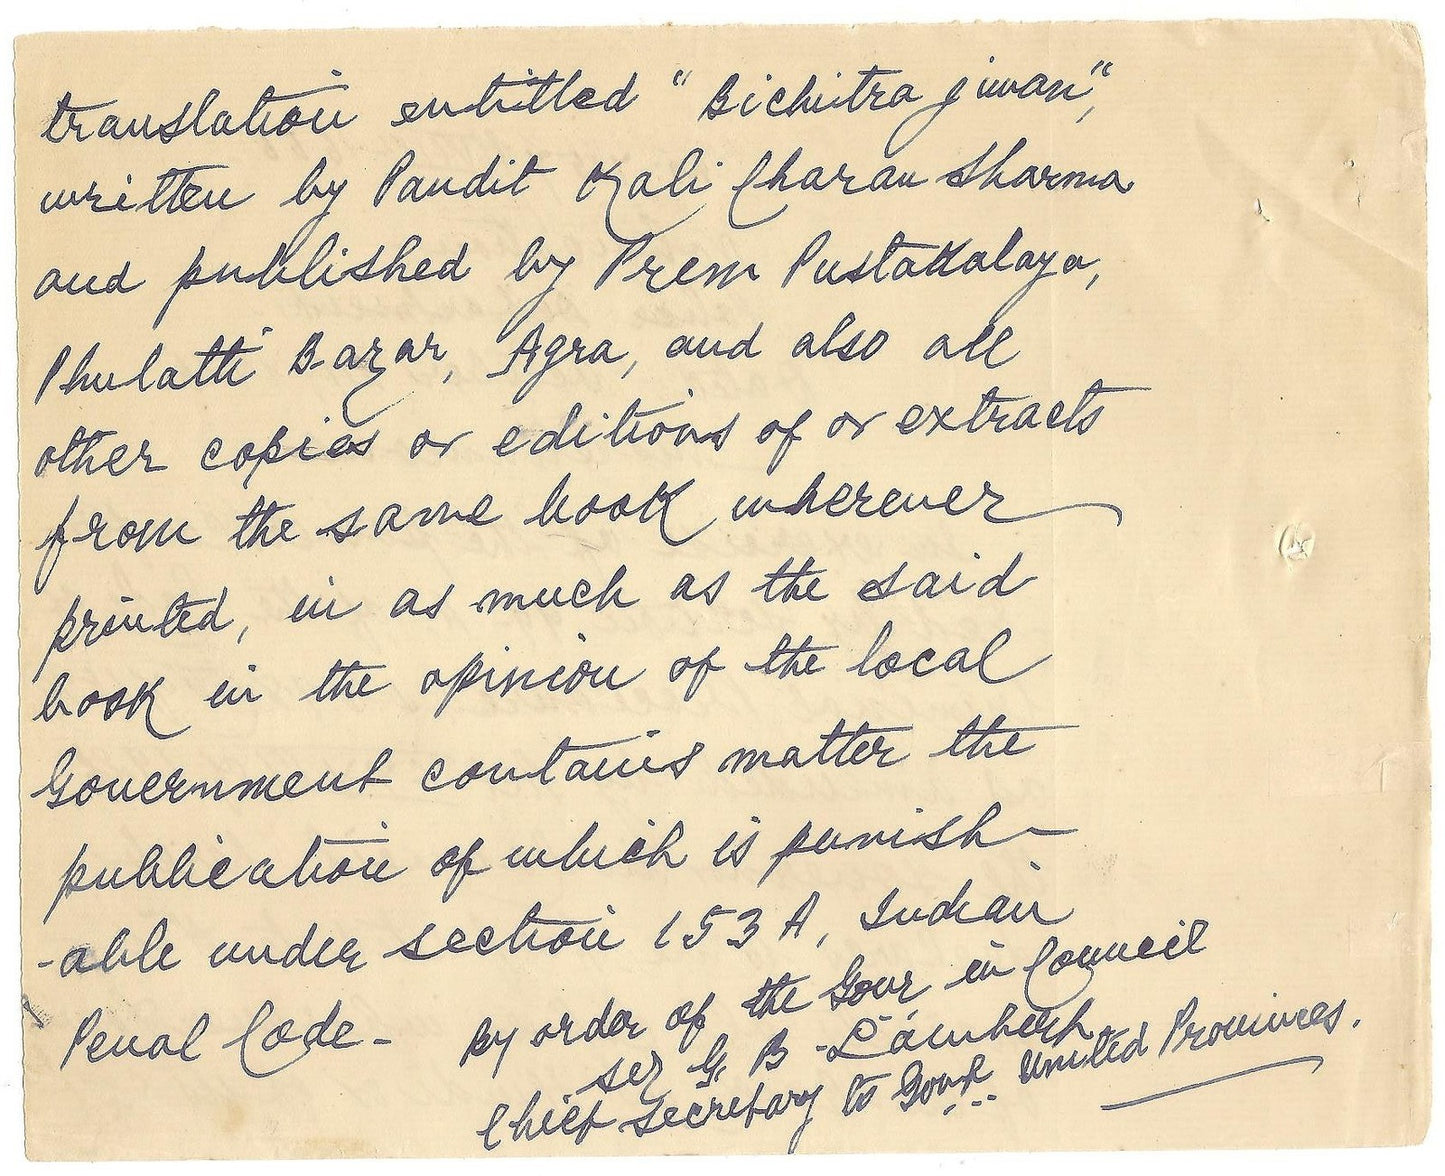 translation entitled "Bichitra jiwan",
written by Pandit Kali Charan Sharma
and published by Prem Pustakalaya,
Phulatti Bazar, Agra, and also all
other copies or editions of or extracts
from the same book wherever
printed, in as much as the said
book in the opinion of the local
Government contains matter the
publication of which is punish
-able under section 153 A, Indian
Penal Code-
By order of the Gour in Council
G. B. Lambert
Chief Secretary to Govt United Provinces.